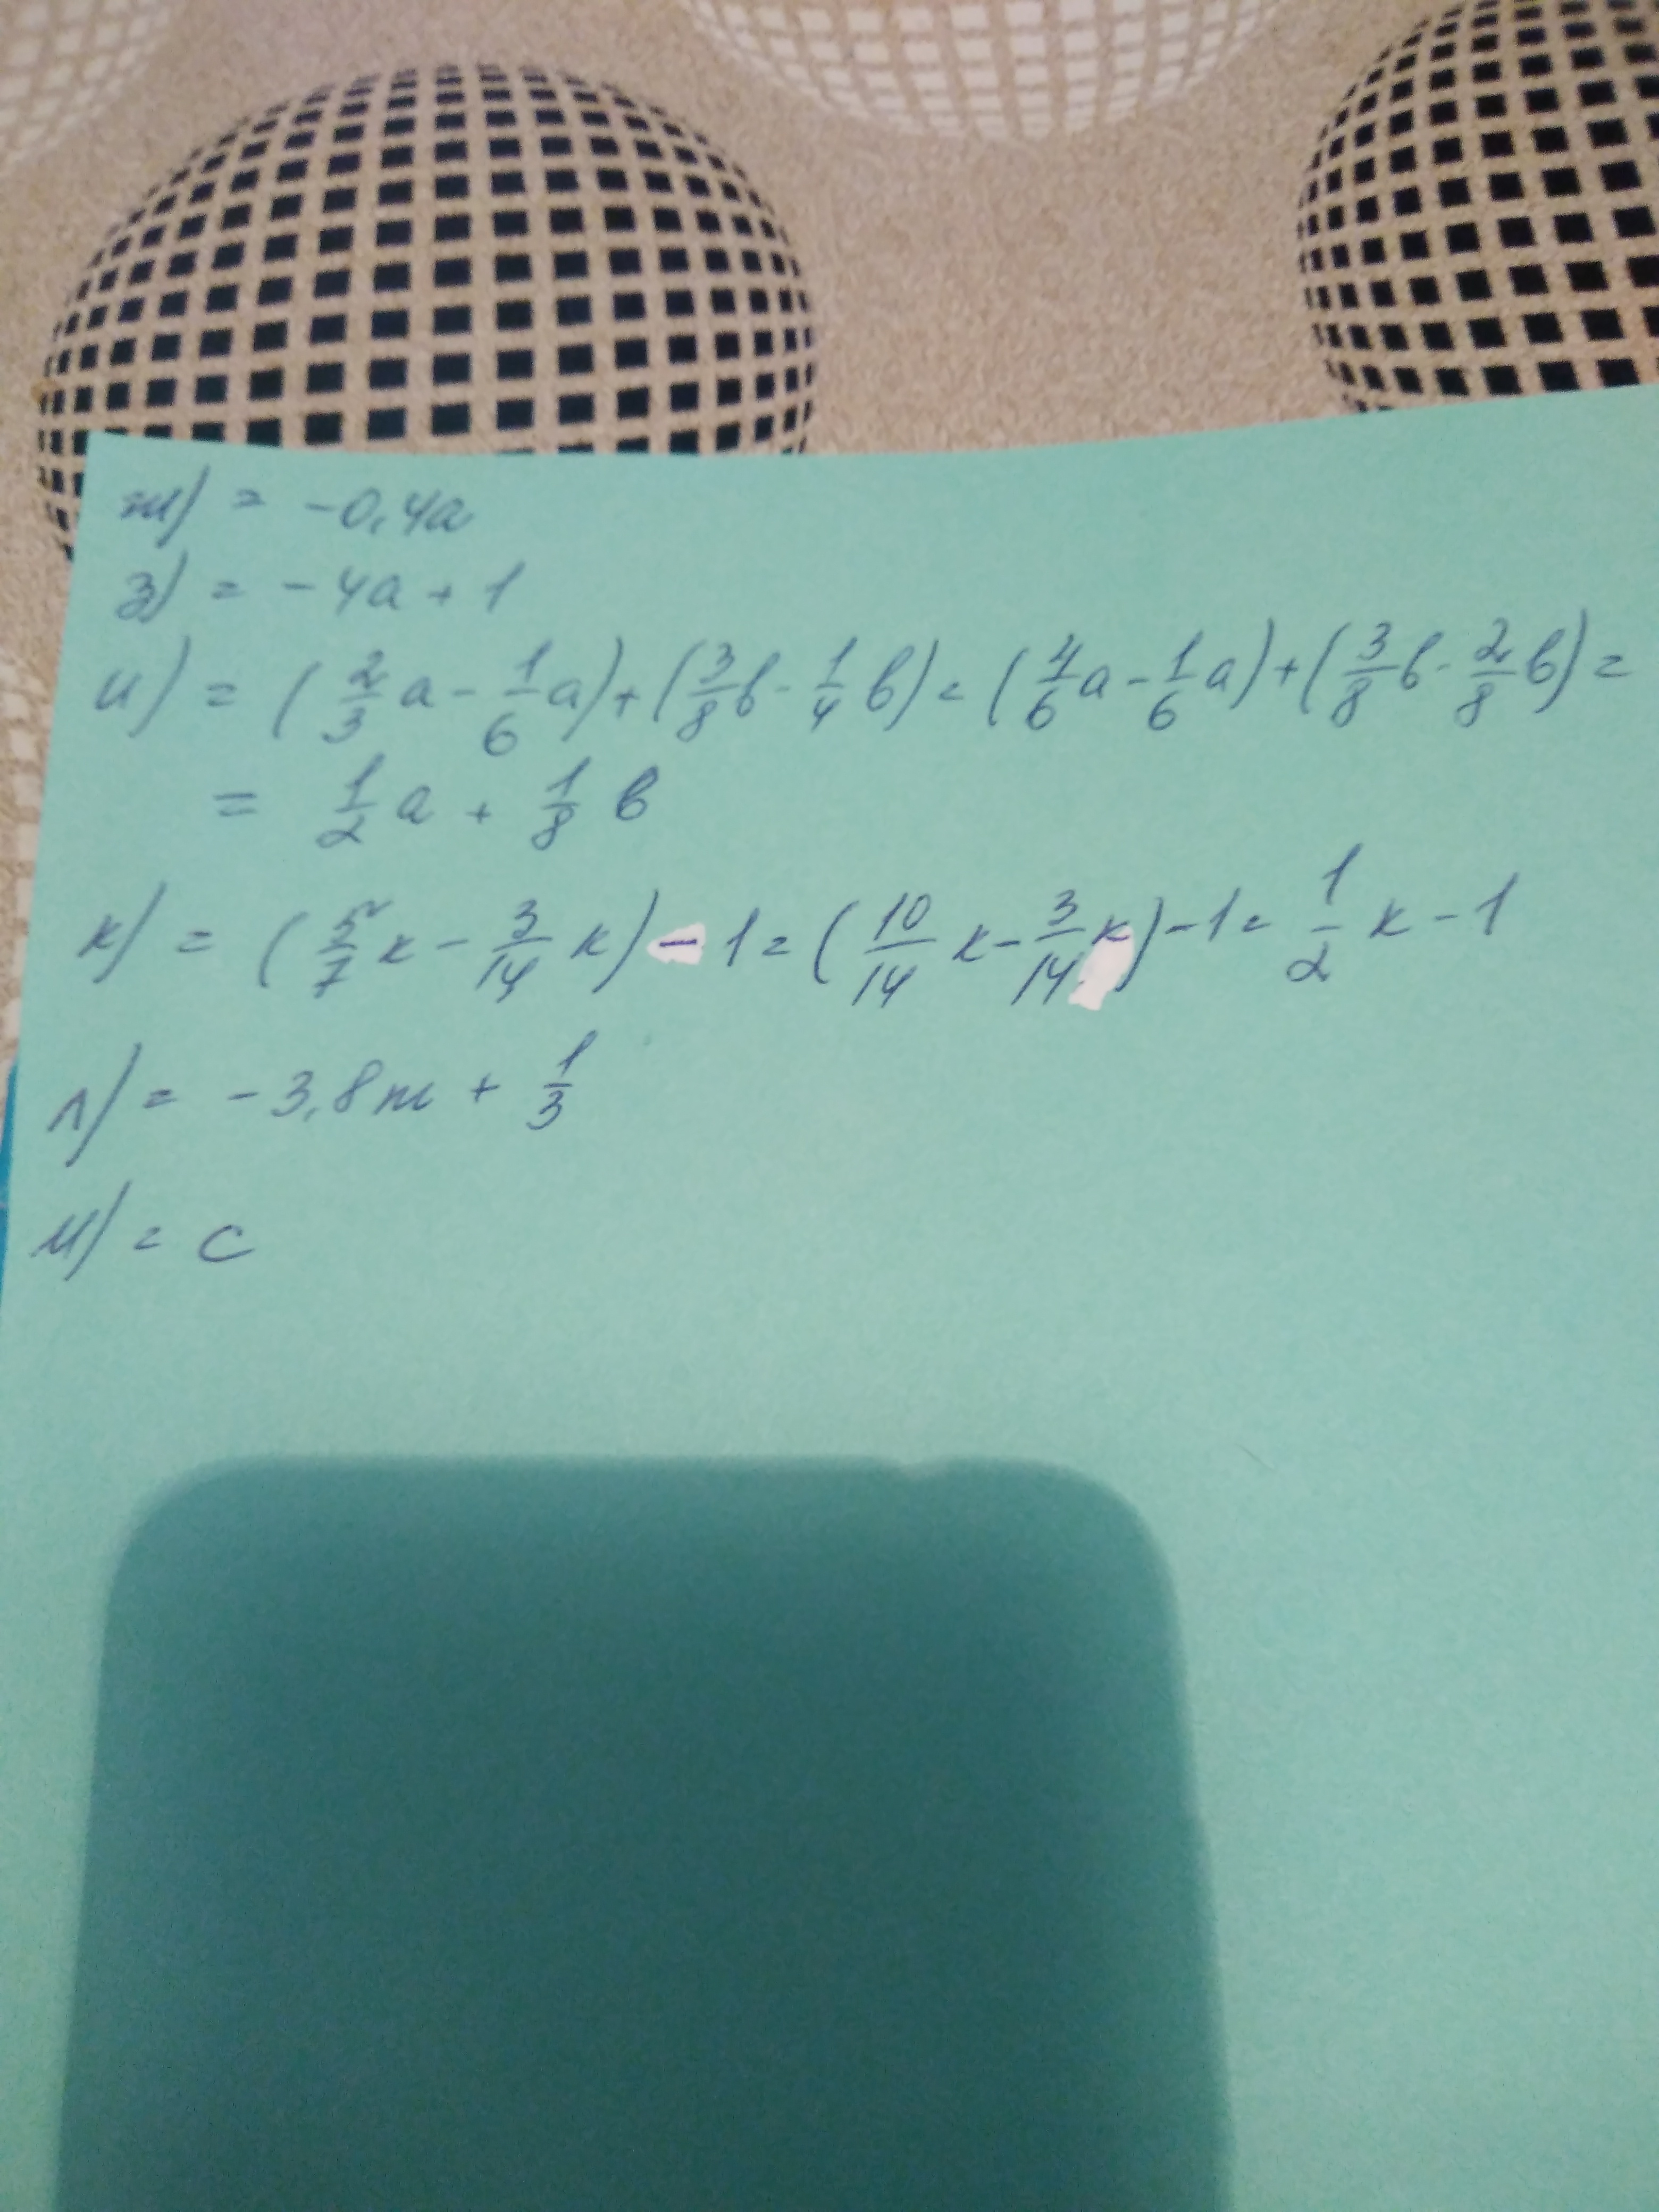 ж) = -0,4a
з) = -4a + 1
и) = (2/3 a - 1/6 a) + (3/8 b - 1/4 b) = (4/6 a - 1/6 a) + (3/8 b - 2/8 b) =
= 1/2 a + 1/8 b
к) = (5/7 к - 3/14 к) - 1 = (10/14 к - 3/14 к) - 1 = 1/2 к - 1
л) = -3,8m + 1/3
м) = c